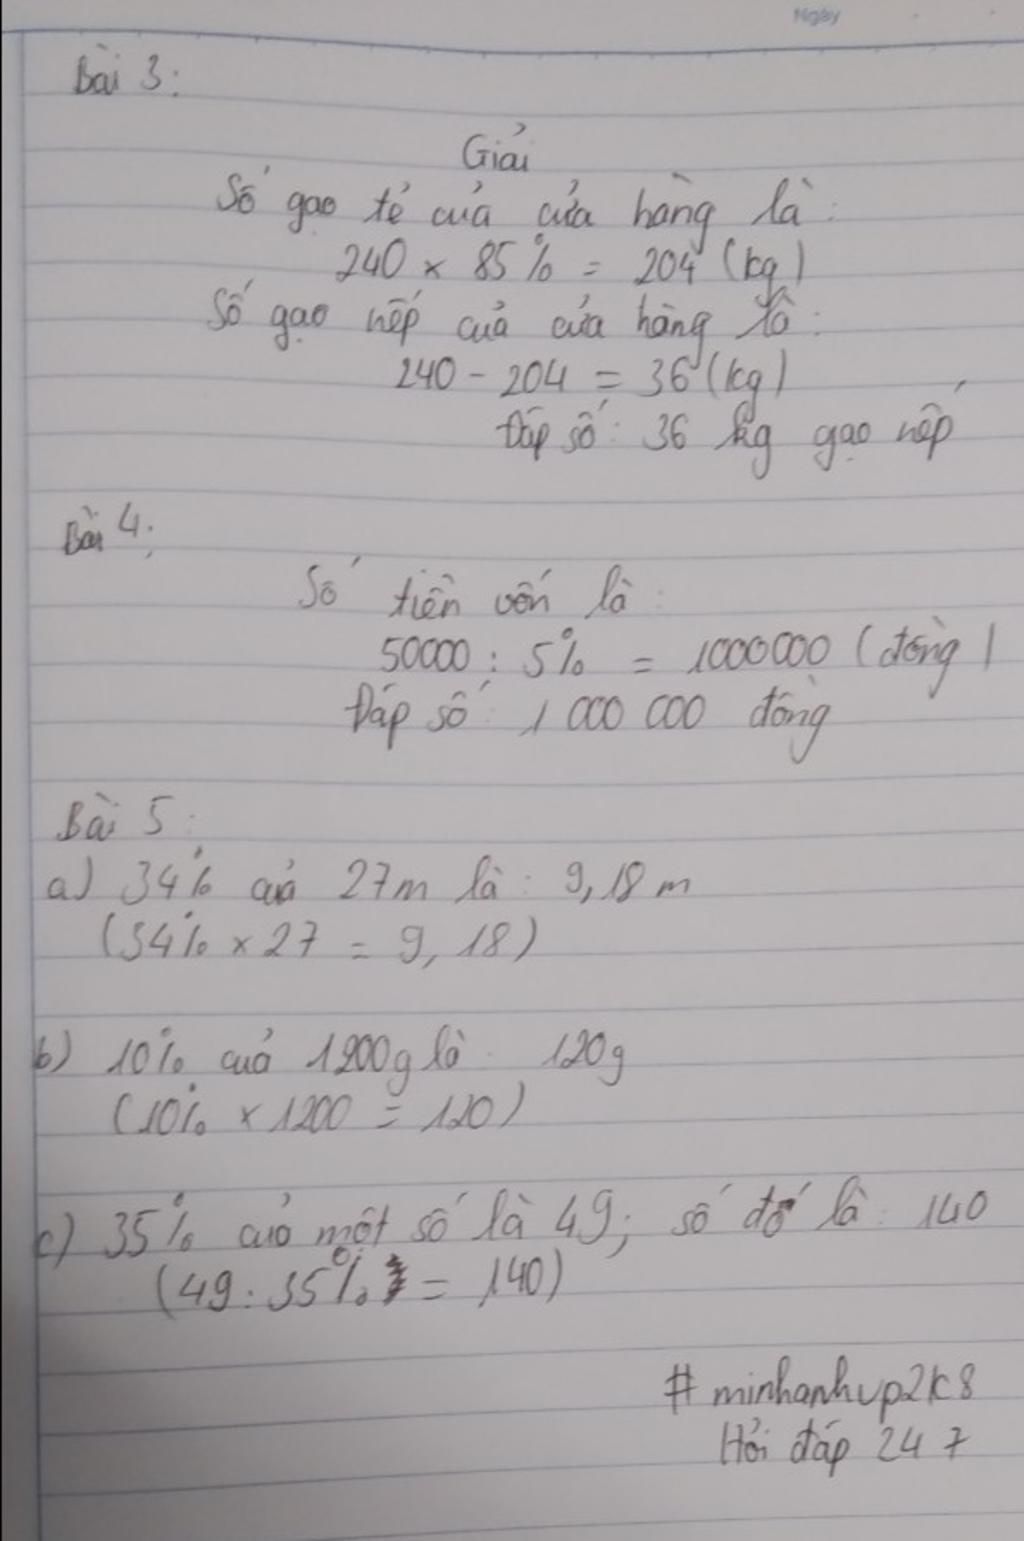 Ngày
Bài 3:
Giải
Số gạo tẻ của cửa hàng là:
240 × 85% = 204 (kg)
Số gạo nếp của cửa hàng là:
240 - 204 = 36 (kg)
Đáp số: 36 kg gạo nếp
Bài 4:
Số tiền vốn là:
50000 : 5% = 1000000 (đồng)
Đáp số: 1 000 000 đồng
Bài 5:
a) 34% của 27m là: 9,18 m
(34% × 27 = 9,18)
b) 10% của 1200g là: 120g
(10% × 1200 = 120)
c) 35% của một số là 49; số đó là: 140
(49 : 35% = 140)
# minhanhvp2k8
Hỏi đáp 247